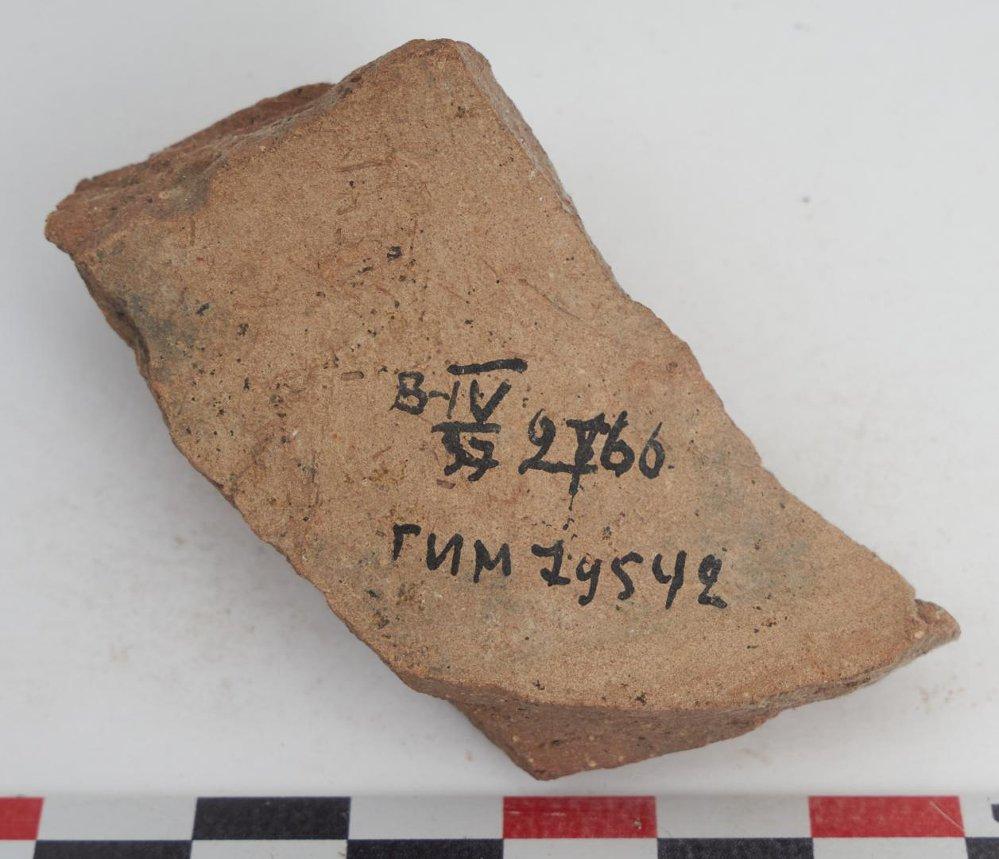 В-IV
37 2766
ГИМ 79542